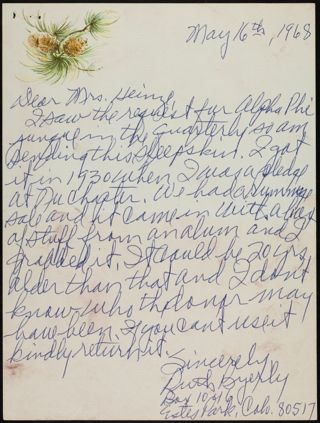 May 16th, 1968
Dear Mrs. Heine,
I saw the request for Alpha Phi
in the Quarterly so am
sending this sheepskin. I got
it in 1930 when I was a pledge
at Nu Chapter. We had a rummage
sale and it came in with a lot
of stuff from an alum and I
grabbed it. It could be 20 yrs.
older than that and I don't
know who the donor may
have been. If you can't use it
kindly return it.
Sincerely,
Ruth Byerly
Box
Estes Park, Colo. 80517